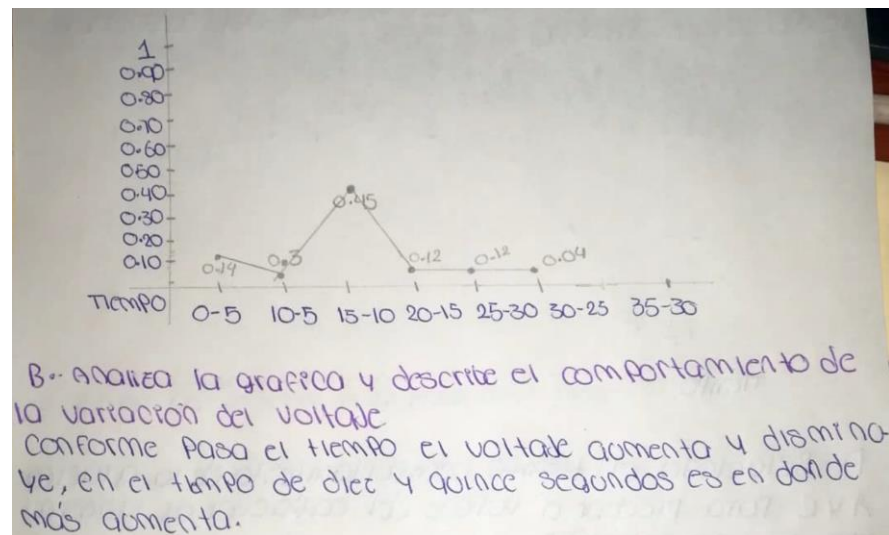 1
0.90
0.80
0.70
0.60
0.50
0.40
0.30
0.20
0.10
0.14 0.3 0.45 0.12 0.12 0.04
TIEMPO 0-5 10-5 15-10 20-15 25-30 30-25 35-30
B.- Analiza la grafica y describe el comportamiento de
la variación del voltaje
Conforme pasa el tiempo el voltaje aumenta y disminu-
ye, en el tiempo de diez y quince segundos es en donde
más aumenta.